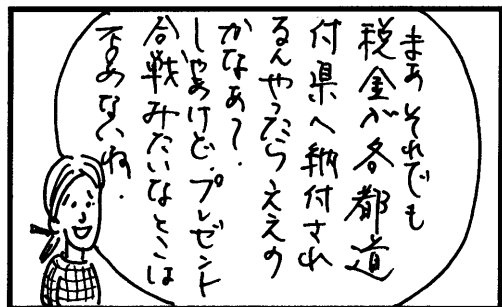 まあ それでも
税金が各都道
付県へ納付され
るんやったらええの
かなぁ?
しゃあけど、プレゼント
合戦みたいなとこは
否めないね。